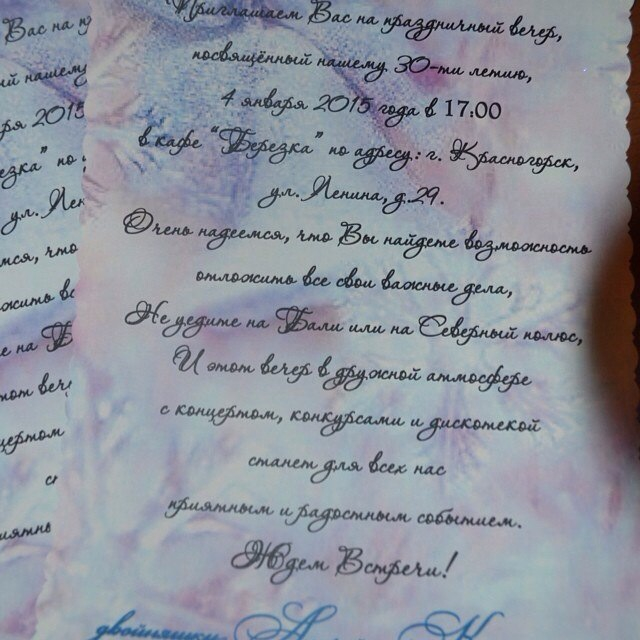 Приглашаем Вас на праздничный вечер,
посвящённый нашему 30-ти летию,
4 января 2015 года в 17:00
в кафе "Березка" по адресу: г. Красногорск,
ул. Ленина, д.29.
Очень надеемся, что Вы найдете возможность
отложить все свои важные дела,
Не уедите на Бали или на Северный полюс,
И этот вечер в дружной атмосфере
с концертом, конкурсами и дискотекой
станет для всех нас
приятным и радостным событием.
Ждем Встречи!
двойняшки